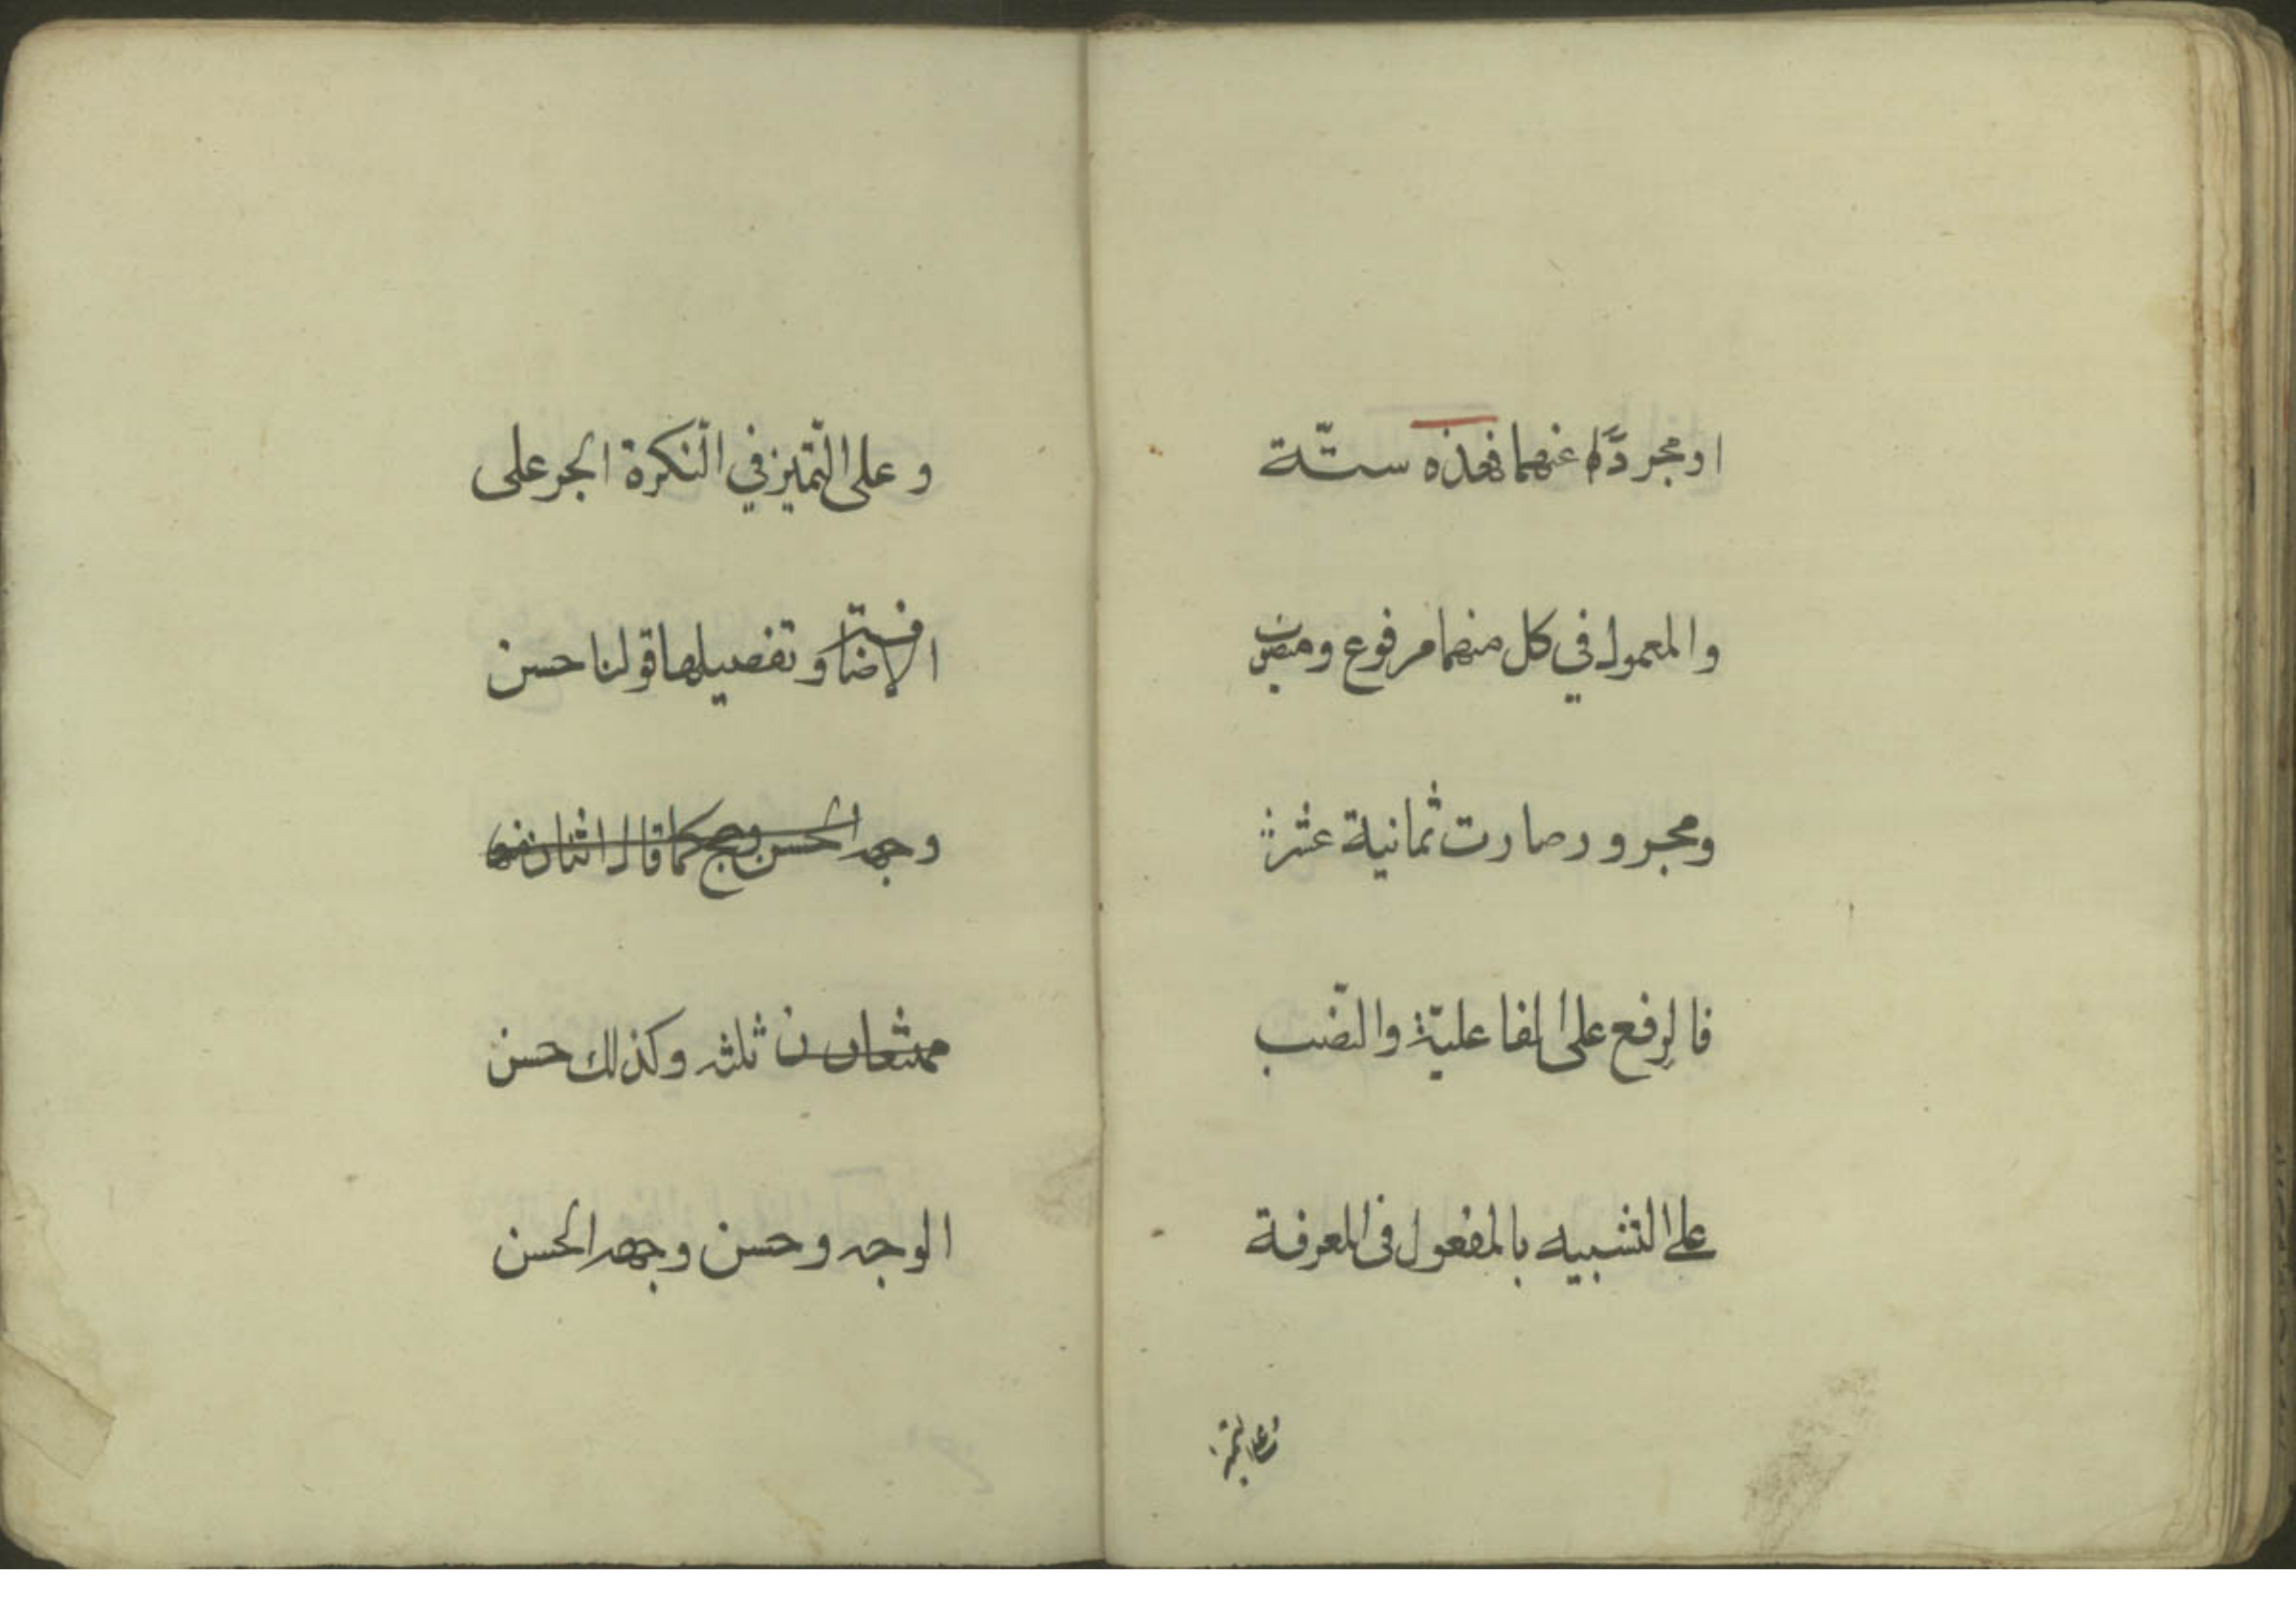 او مجردًا عنهما فهذه ستّة
والمعمول في كل منهما مرفوع ومنصوب
ومجرور صارت ثمانية عشر
فالرفع على الفاعليّة والنّصب
على التشبيه بالمفعول فى المعرفة
وعلى التميز
و على التّميز في النّكرة الجر على
الاضافة و تفصيلها قولنا حسن
وجهه الحسن وجه كما قال اثنان
ثلثه وكذلك حسن
الوجه و حسن وجهه الحسن